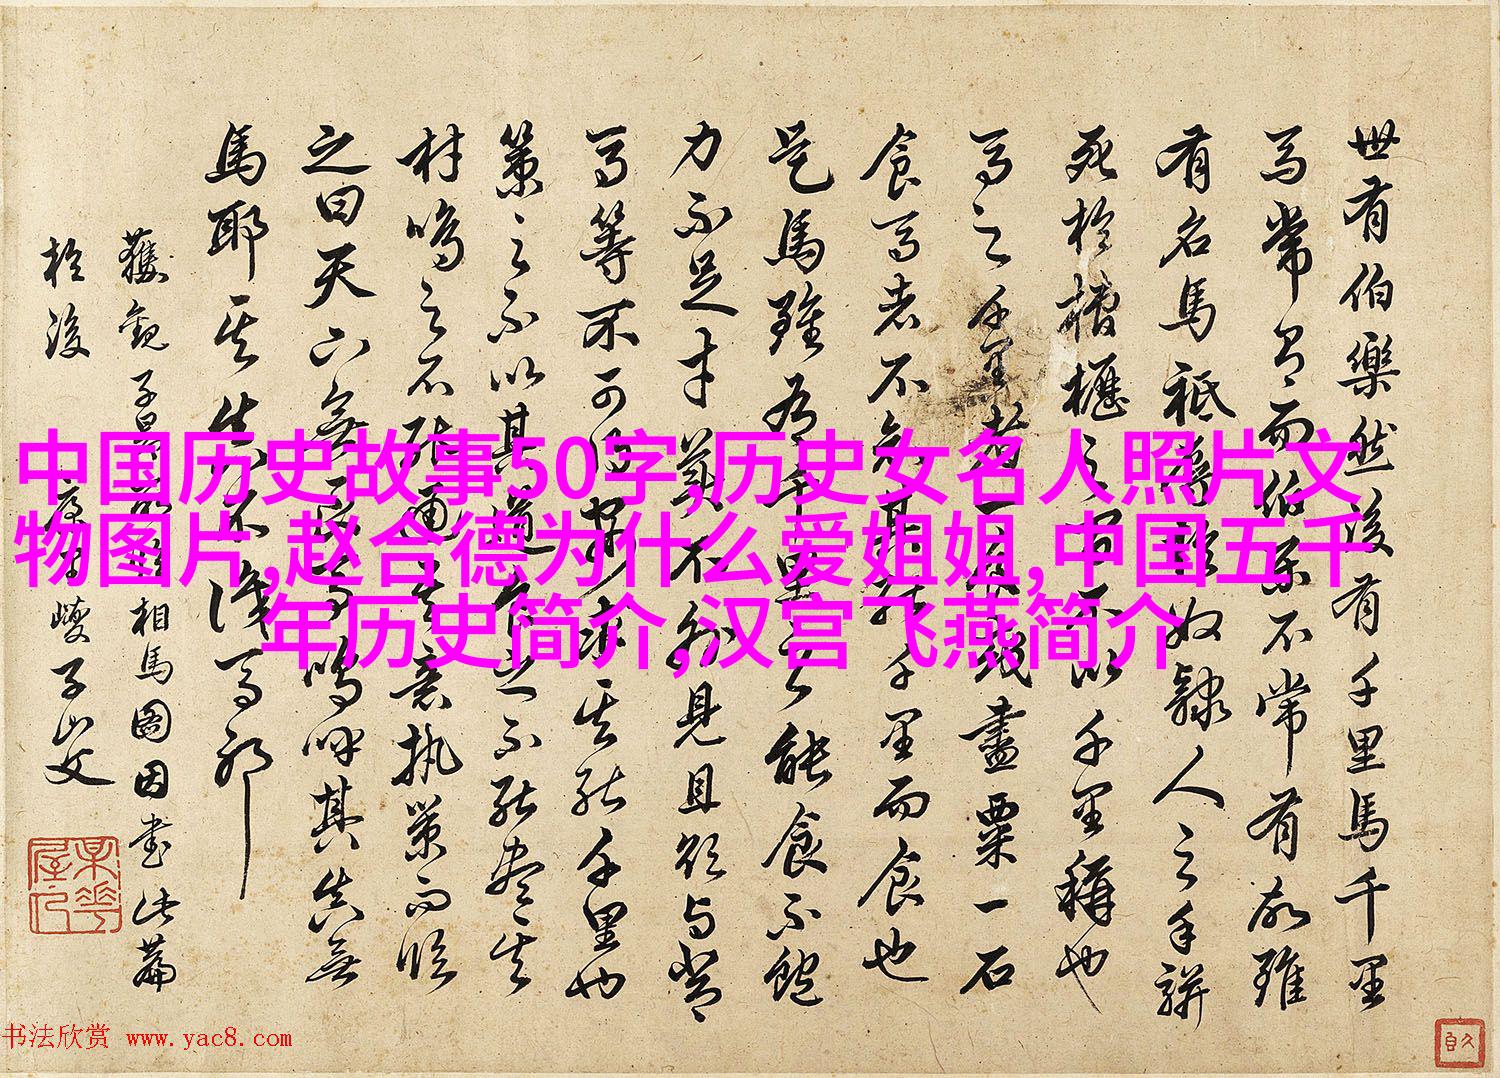 中国历史故事50字,历史女名人照片文
物图片,赵合德为什么爱姐姐,中国五千
年历史简介,汉宫飞燕简介
世有伯樂然後有千里馬千里
馬常有而伯樂不常有故雖
有名馬祗辱於奴隸人之手駢
死於槽櫪之間不以千里稱也
馬之千里者一食或盡粟一石
食馬者不知其能千里而食也
是馬雖有千里之能食不飽
力不足才美不外見且欲與常
馬等不可得安求其能千里也
策之不以其道食之不能盡其
材鳴之不能通其意執策而臨
之曰天下無良馬嗚呼其真無
馬耶其真不識馬耶
獲觀子昂相馬圖因書此篇
於後康里巎子山父
书法欣赏 www.yac8.com